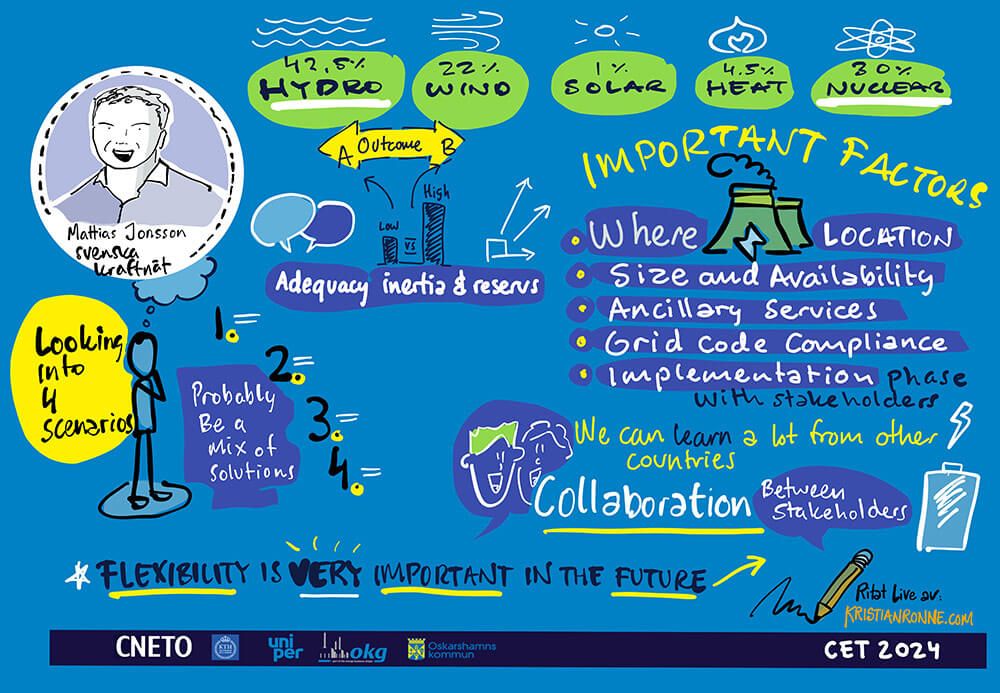 42,5%
HYDRO
22%
WIND
1%
SOLAR
4.5%
HEAT
30%
NUCLEAR
A Outcome B
Low
vs
High
Adequacy inertia & reservs
Mattias Jonsson
svenska
kraftnät
Looking
into
4
scenarios
1.
2.
3.
4.
Probably
Be a
mix of
solutions
IMPORTANT FACTORS
Where LOCATION
Size and Availability
Ancillary Services
Grid Code Compliance
Implementation phase
with stakeholders
We can learn a lot from other
countries
Collaboration
Between
Stakeholders
FLEXIBILITY IS VERY IMPORTANT IN THE FUTURE
Ritat Live av:
KRISTIANRONNE.COM
CNETO
KTH
uni
per
okg
Oskarshamns
kommun
CET 2024